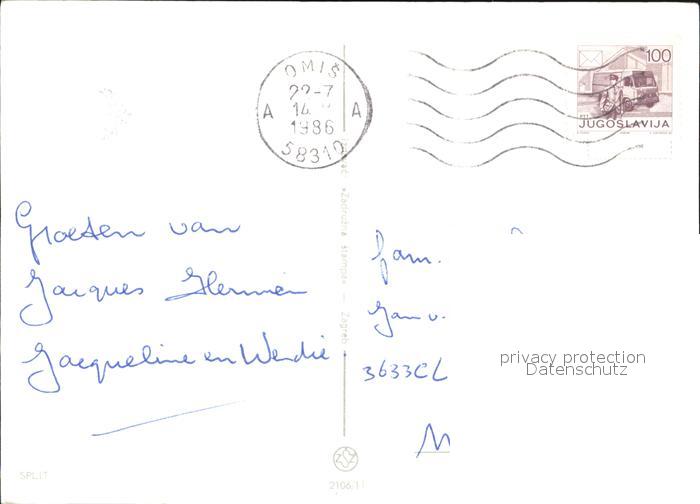 OMIŠ
22-7
14
A A
1986
58310
100
JUGOSLAVIJA
Groeten van
Jacques Hermien
Jacqueline en Wendie
fam.
Jan v.
3633CL
M
privacy protection
Datenschutz
»Zadružna štampa« — Zagreb
SPLIT
2106/11